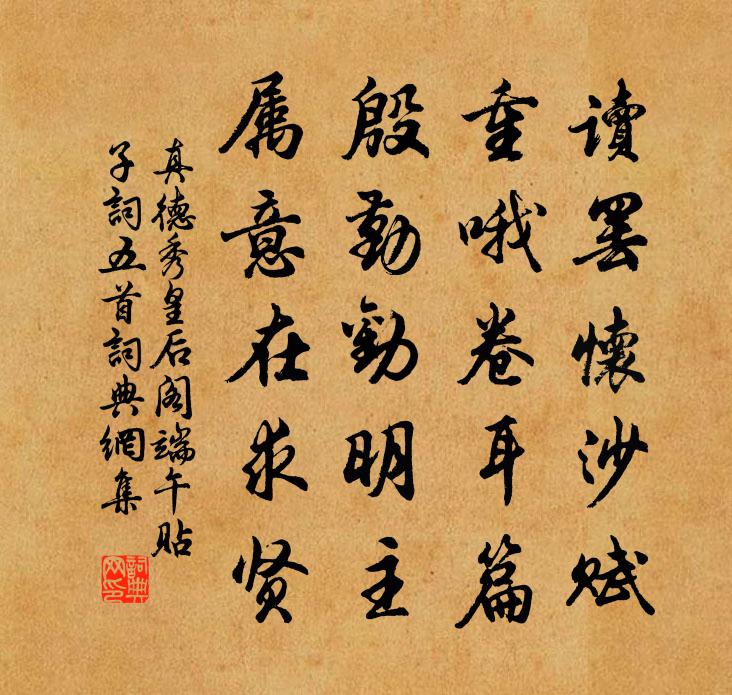 读罢怀沙赋
重哦卷耳篇
殷勤劝明主
属意在求贤
真德秀皇后阁端午贴
子詞五首詞典網集
詞典網印